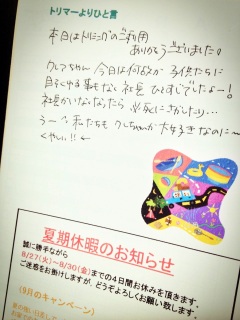 トリマーよりひと言
本日はトリミングのご利用
ありがとうございました!
クレアちゃん 今日は何故か 子供たちに
目もくれる事もなく 社長 ひとすじでしたよー!
社長がいなくなったら 必死にさがしたり…
うーっ 私たちも クレちゃんが大好きなのに〜
くやしい!!
夏期休暇のお知らせ
誠に勝手ながら
8/27(火)〜8/30(金)までの4日間お休みを頂きます。
ご迷惑をお掛けしますが、どうぞよろしくお願い致します。
(9月のキャンペーン)